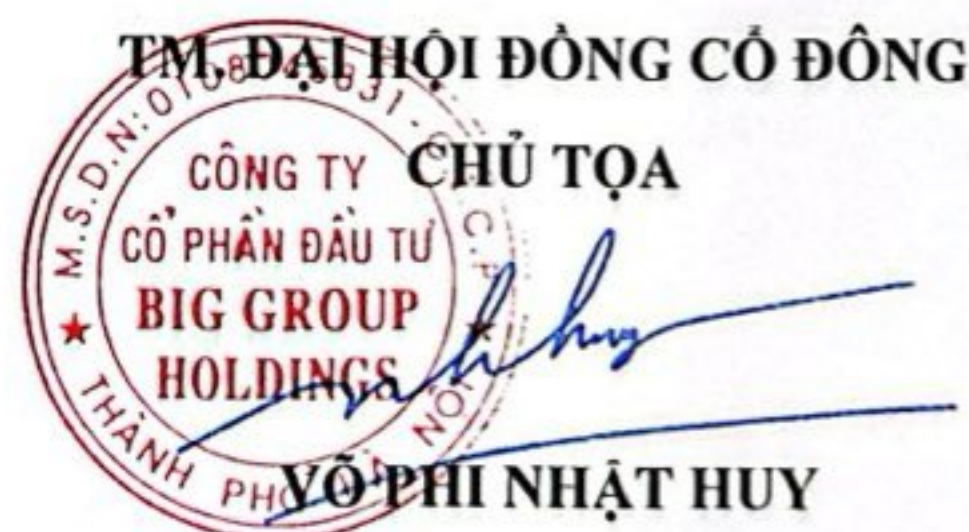 TM. ĐẠI HỘI ĐỒNG CỔ ĐÔNG
CHỦ TỌA
M.S.D.N:
C.P
CÔNG TY
CỔ PHẦN ĐẦU TƯ
BIG GROUP
HOLDINGS
THÀNH PHỐ HÀ NỘI
huy
VÕ PHI NHẬT HUY